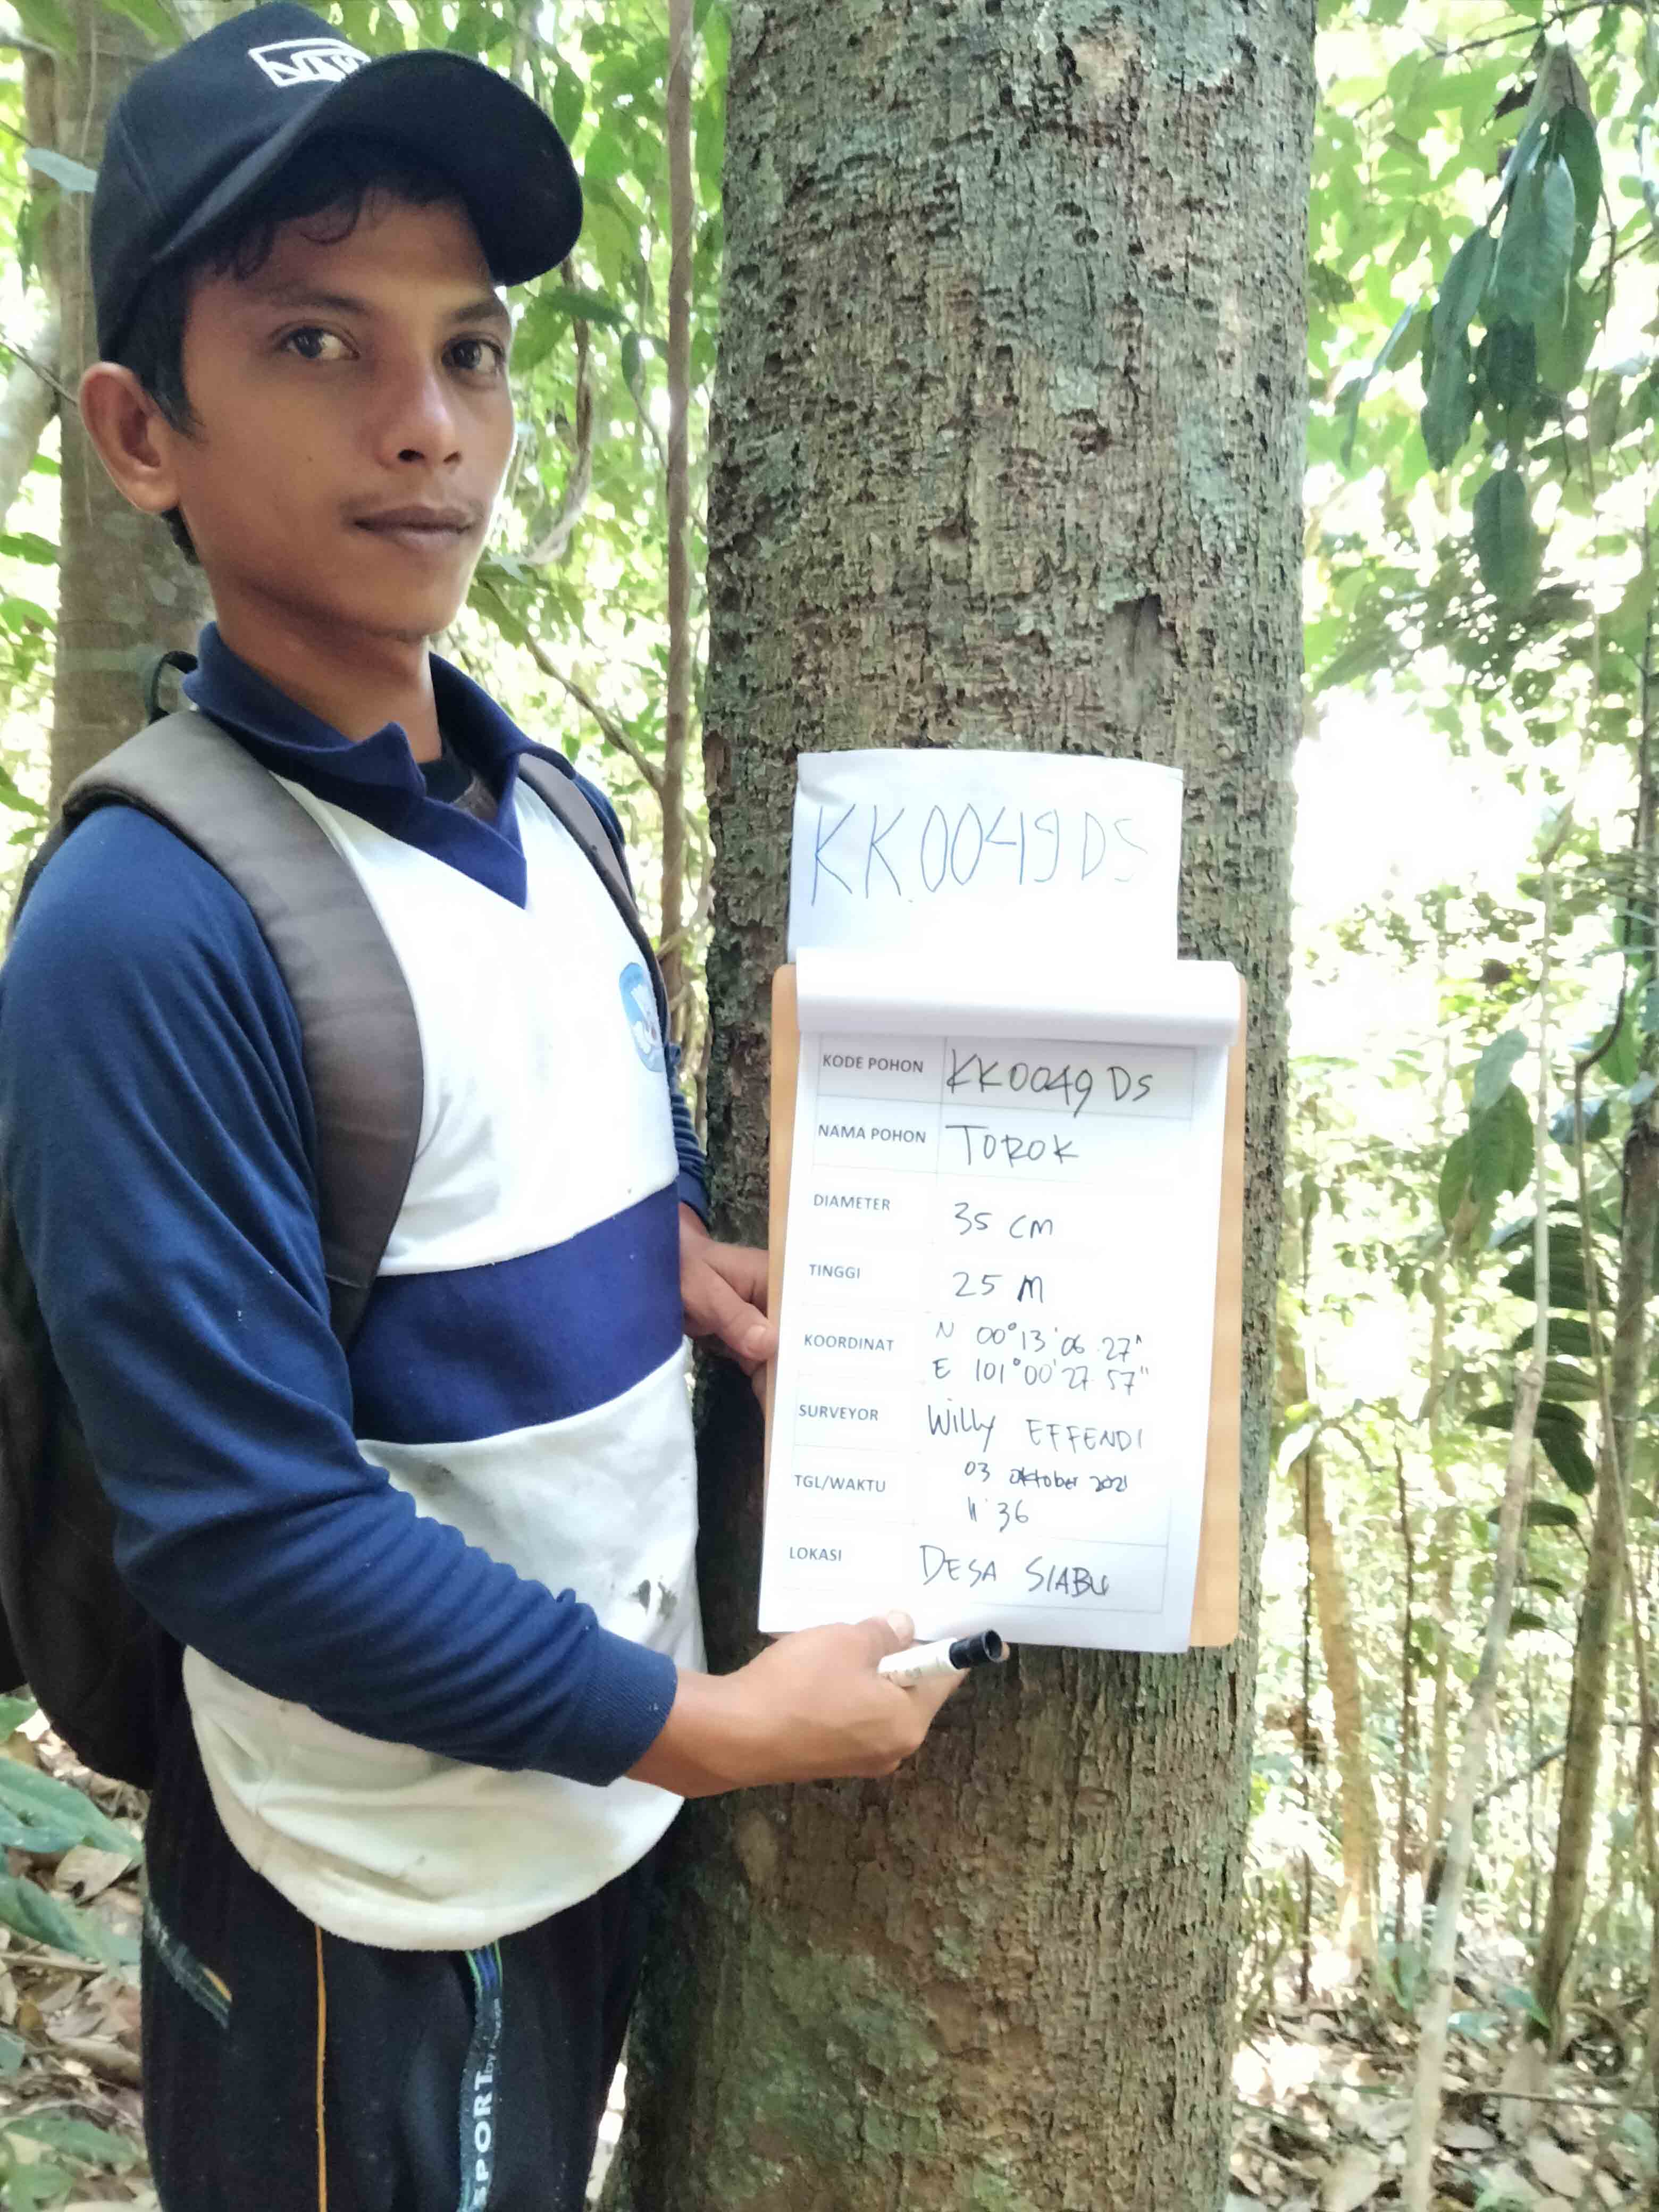 KK0049DS
KODE POHON KK0049 DS
NAMA POHON TOROK
DIAMETER 35 CM
TINGGI 25 M
KOORDINAT N 00°13'06.27"
E 101°00'27.57"
SURVEYOR Willy EFFENDI
TGL/WAKTU 03 Oktober 2021
11:36
LOKASI DESA SIABU
SPORT by